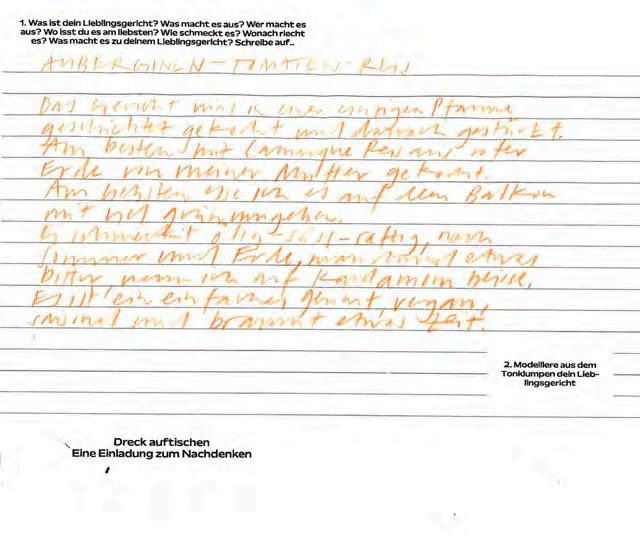 1. Was ist dein Lieblingsgericht? Was macht es aus? Wer macht es
aus? Wo isst du es am liebsten? Wie schmeckt es? Wonach riecht
es? Was macht es zu deinem Lieblingsgericht? Schreibe auf..
AUBERGINEN-TOMATEN-REIS
Das Gericht wird in einer einzigen Pfanne
geschichtet gekocht und danach gestürzt.
Am besten mit Camargue Reis aus roter
Erde von meiner Mutter gekocht.
Am liebsten esse ich es auf dem Balkon
mit viel grün umgeben.
Es schmeckt ölig-süß-saftig, nach
Sommer und Erde, manchmal etwas
bitter wenn ich auf Kardamom beisse.
Es ist ein einfaches Gericht, vegan,
saisonal und braucht etwas Zeit.
2. Modelliere aus dem
Tonklumpen dein Lieb-
lingsgericht
Dreck auftischen
Eine Einladung zum Nachdenken